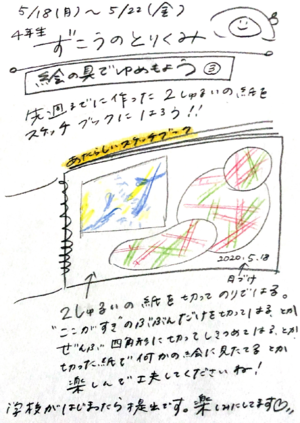 5/18(月)〜5/22(金)
4年生
ずこうのとりくみ
絵の具でゆめもよう③
先週までに作った2しゅるいの紙を
スケッチブックにはろう!!
あたらしいスケッチブック
2020.5.18
日づけ
2しゅるいの紙を切ってのりではる。
"ここがすき"のぶぶんだけを切ってはる、とか
ぜんぶ四角形に切ってしきつめてはる、とか
切った紙で何かの絵に見たてるとか
楽しんで工夫してくださいね!
学校がはじまったら提出です。楽しみにしてます♡